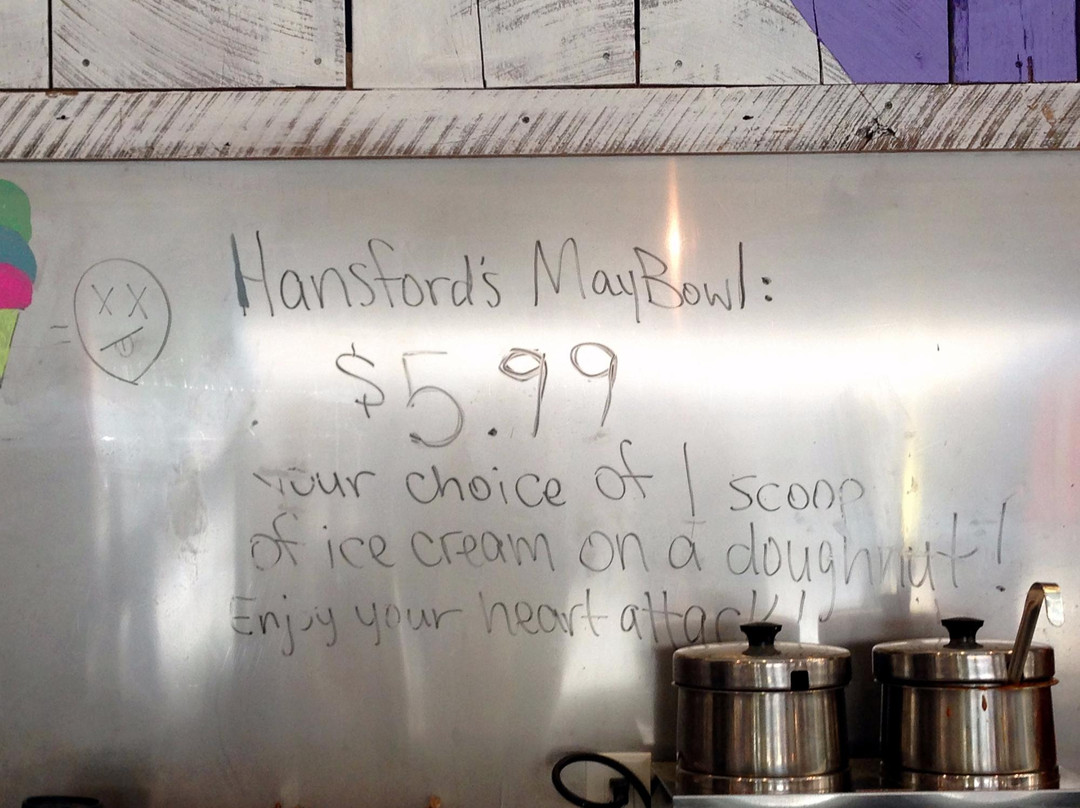 Hansford's MayBowl:
$5.99
your choice of 1 scoop
of ice cream on a doughnut!
Enjoy your heart attack!